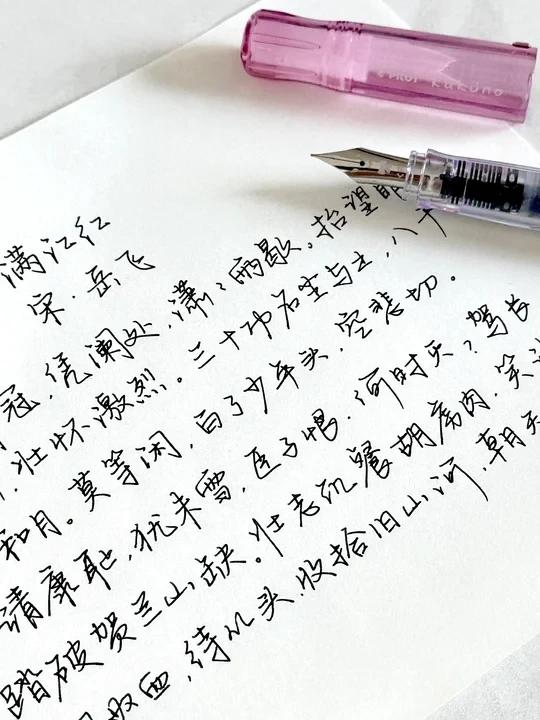 PILOT kakuno
满江红
宋·岳飞
冠,凭阑处,潇〻雨歇。抬望
,壮怀激烈。三十功名尘与土,八千
和月。莫等闲,白了少年头,空悲切。
靖康耻,犹未雪,臣子恨,何时灭?驾长
踏破贺兰山缺。壮志饥餐胡虏肉,笑
奴血,待从头,收拾旧山河,朝天